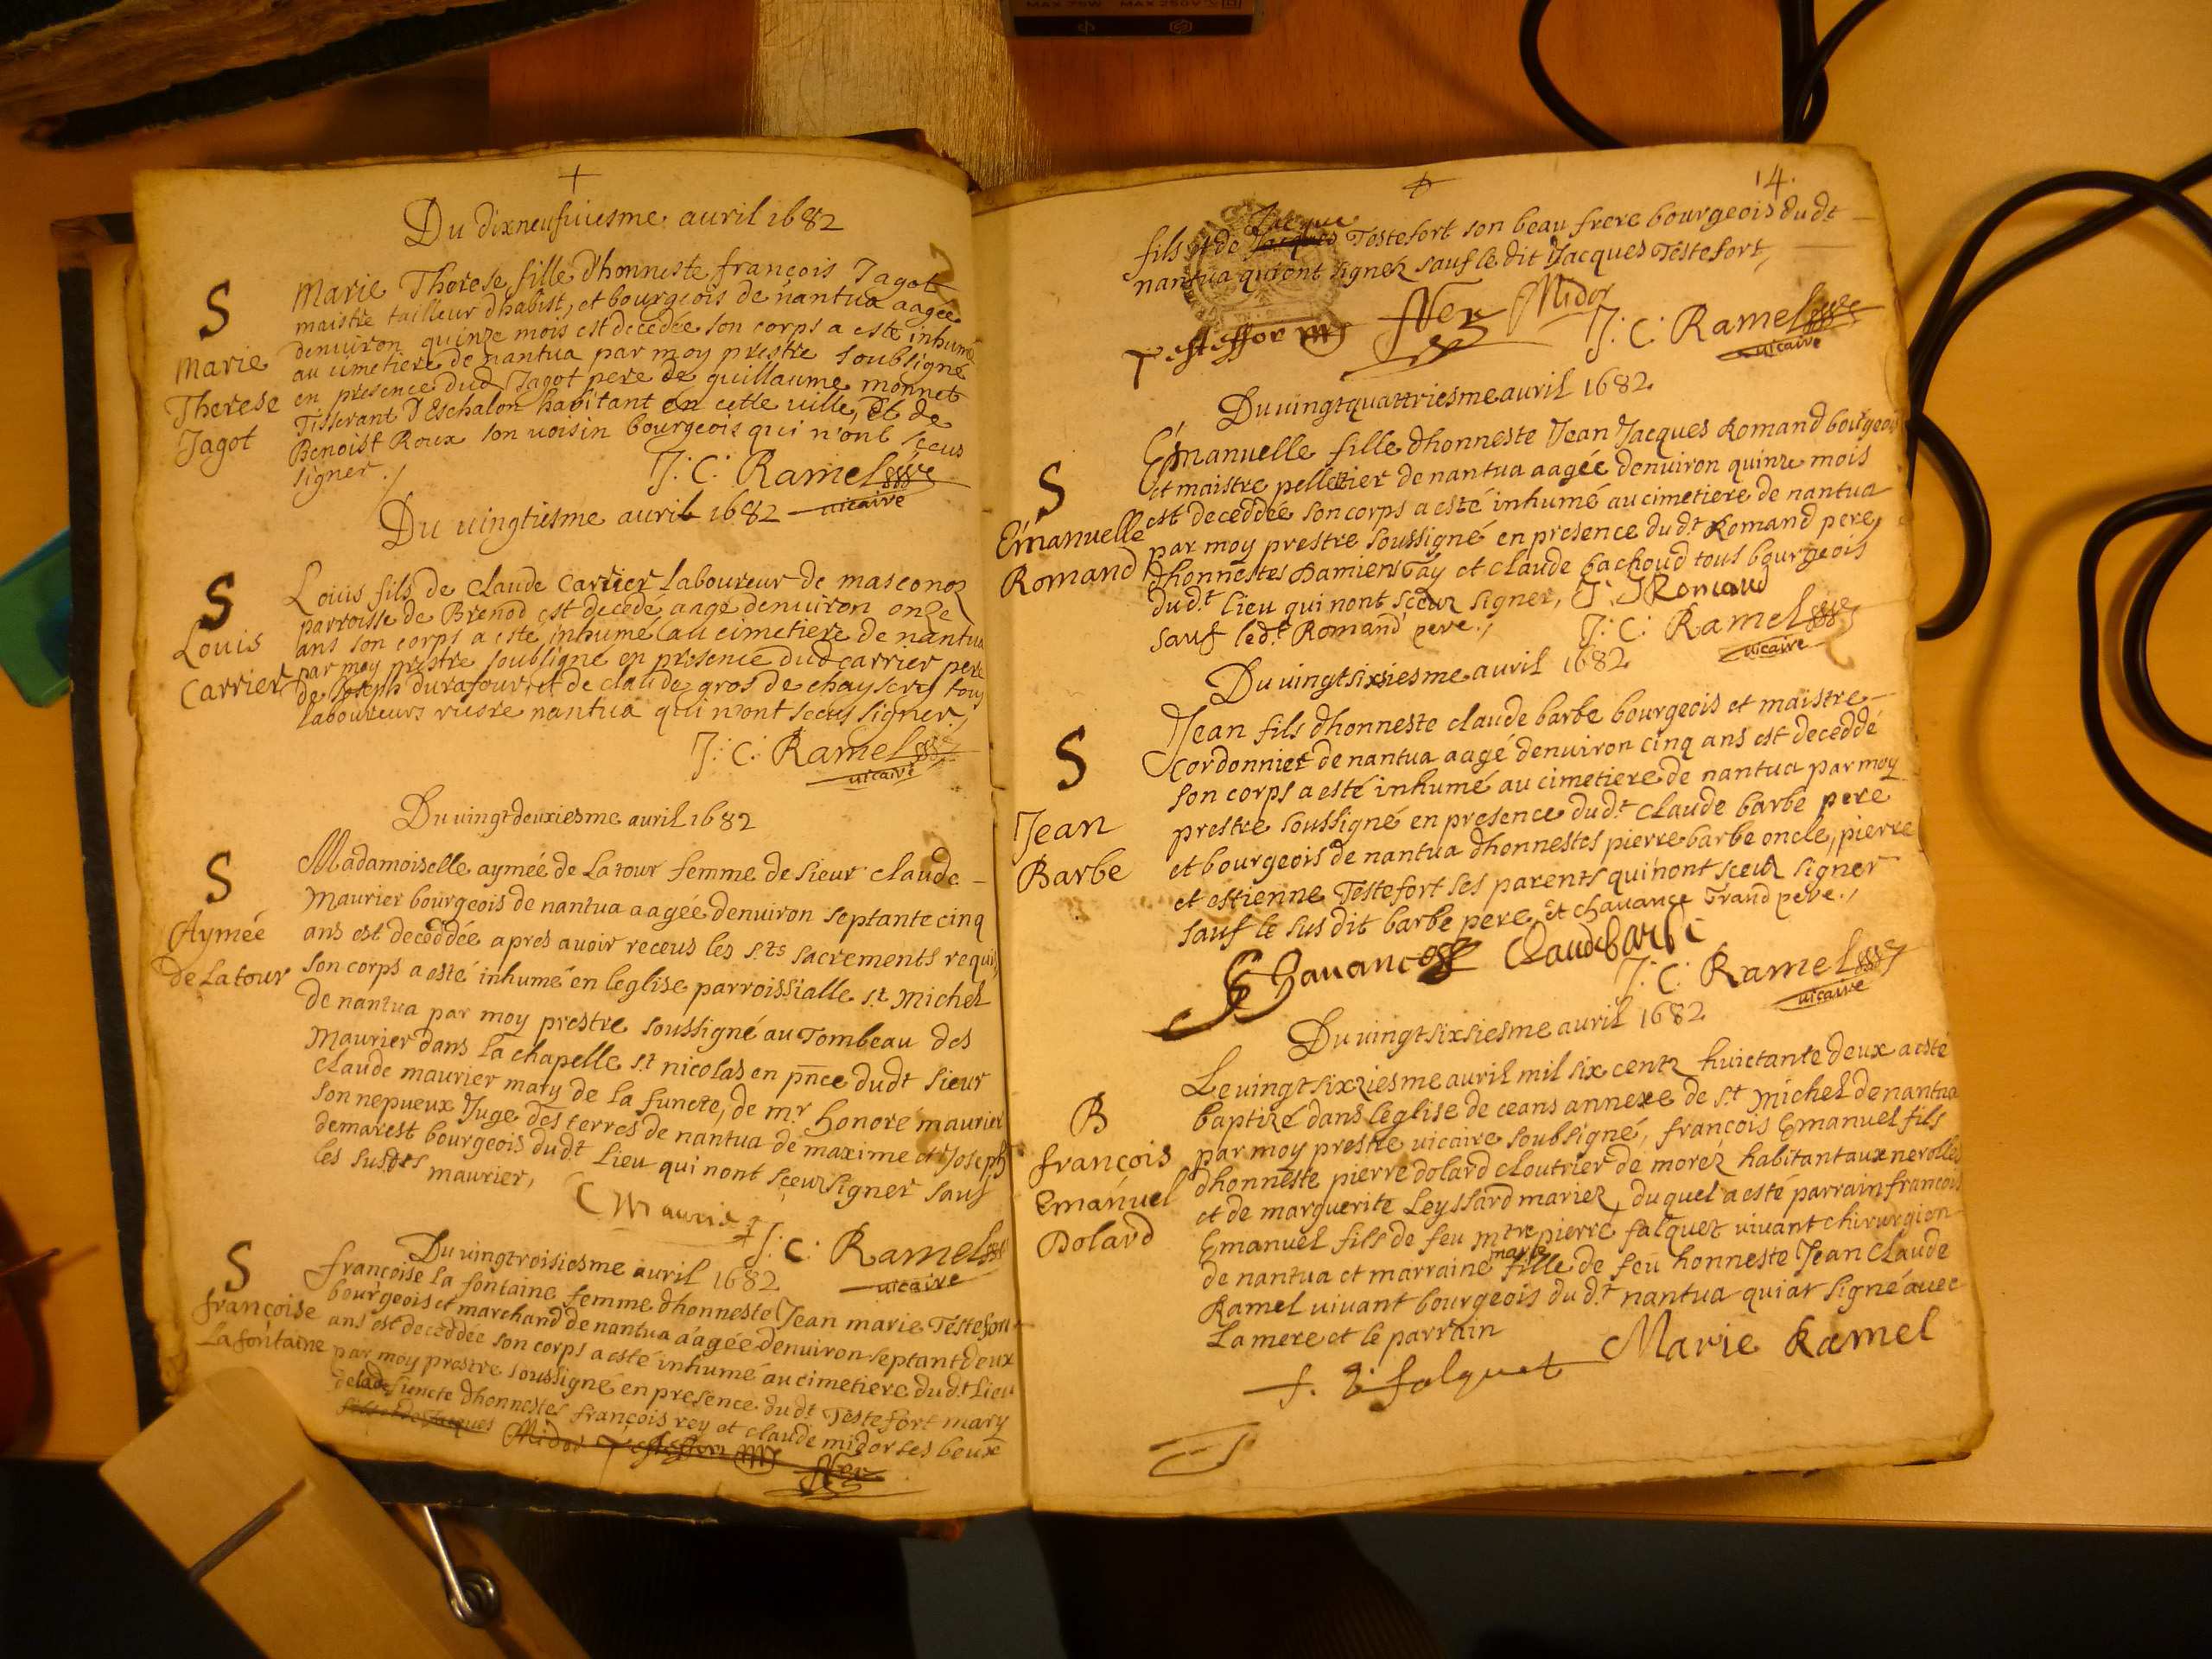 Du dixneufuiesme auril 1682
S
Marie
Therese
Jagot
Marie Therese fille d'honneste françois Jagot
maistre tailleur dhabist, et bourgeois de nantua aagée
denuiron quinze mois est decedée son corps a esté inhumé
au cimetiere de nantua par moy prestre soubsigné
en presence dud Jagot pere de guillaume monnet
Tisserant d'Eschalon habitant en cette ville, et de
Benoist Roux son uoisin bourgeois qui n'ont sceus
signer ./
J: C: Ramel
uicaire
Du uingtiesme auril 1682
S
Louis
Carrier
Louis fils de Claude Carrier laboureur de masconoz
parroisse de Brenod est decedé aagé denuiron onze
ans son corps a esté inhumé au cimetiere de nantua
par moy prestre soubsigné en presence dud carrier pere
de Joseph durafour, et de claude gros de chaysery tous
laboureurs riere nantua qui n'ont sceus signer,
J: C: Ramel
uicaire
Du uingt deuxiesme auril 1682
S
Aymée
de Latour
Madamoiselle aymée de La tour femme de sieur claude
Maurier bourgeois de nantua aagée denuiron septante cinq
ans est deceddée apres auoir receus les s.ts sacrements requis,
son corps a esté inhumé en leglise parroissialle s.t michel
de nantua par moy prestre soussigné au Tombeau des
Maurier dans la chapelle s.t nicolas en pñce dudt sieur
Claude maurier mary de la functe, de m.r honoré maurier
son nepueux Juge des terres de nantua de maxime et Joseph
demarest bourgeois dudt Lieu qui nont sçeuz signer sauf
les susdts maurier,
C Maurier
J: C: Ramel
uicaire
Du uingtroisiesme auril 1682
S
françoise
La fontaine
françoise la fontaine femme dhonneste Jean marie Testefort
bourgeois et marchand de nantua aagée denuiron septant deux
ans est deceddée son corps a esté inhumé au cimetiere dud.t Lieu
par moy prestre soussigné en presence dudt Testefort mary
de lad functe dhonnestes françois rey et claude midor ses beux
fils et de Jacques Midor Testeffort
14.
Jacque
fils et de Jacques Testefort son beau frere bourgeois dudt
nantua qui ont signéz sauf le dit Jacques Testefort,
Testeffor Midor
J: C: Ramel
uicaire
Du uingt quattriesme auril 1682
S
Emanuelle
Romand
Emanuelle fille dhonneste Jean Jacques Romand bourgeois
et maistre pelletier de nantua aagée denuiron quinze mois
est deceddée son corps a esté inhumé au cimetiere de nantua
par moy prestre soussigné en presence dud.t Romand pere,
dhonnestes Damiens Tay et claude bachoud tous bourgeois
dud.t lieu qui nont sceuz signer, J. J Romand
sauf led.t Romand pere.,
J: C: Ramel
uicaire
Du uingt sixsiesme auril 1682
S
Jean
Barbe
Jean fils dhonneste claude barbe bourgeois et maistre
cordonnier de nantua aagé denuiron cinq ans est deceddé
son corps a esté inhumé au cimetiere de nantua par moy
prestre soussigné en presence dud.t Claude barbe pere
et bourgeois de nantua dhonnestes pierre barbe oncle, pierre
et estienne Testefort ses parents qui nont sceuz signer
sauf le sus dit barbe pere, et chauance Grand pere.,
Chauance Claude barbe
J: C: Ramel
uicaire
Du uingt sixsiesme auril 1682
B
françois
Emanuel
Dolard
Le uingt sixziesme auril mil six centz huictante deux a esté
baptizé dans leglise de ceans annexe de s.t michel de nantua
par moy prestre uicaire soubsigné, françois Emanuel fils
dhonneste pierre dolard cloutrier de moréz habitant aux nerolles
et de marguerite Leyssard mariez, duquel a esté parrain françois
Emanuel fils de feu mtre pierre falquet vivant chirurgien
marie
de nantua et marraine fille de feu honneste Jean Claude
Ramel vivant bourgeois dud.t nantua qui at signé auec
La mere et le parrain
Marie Ramel
f. E. falquet